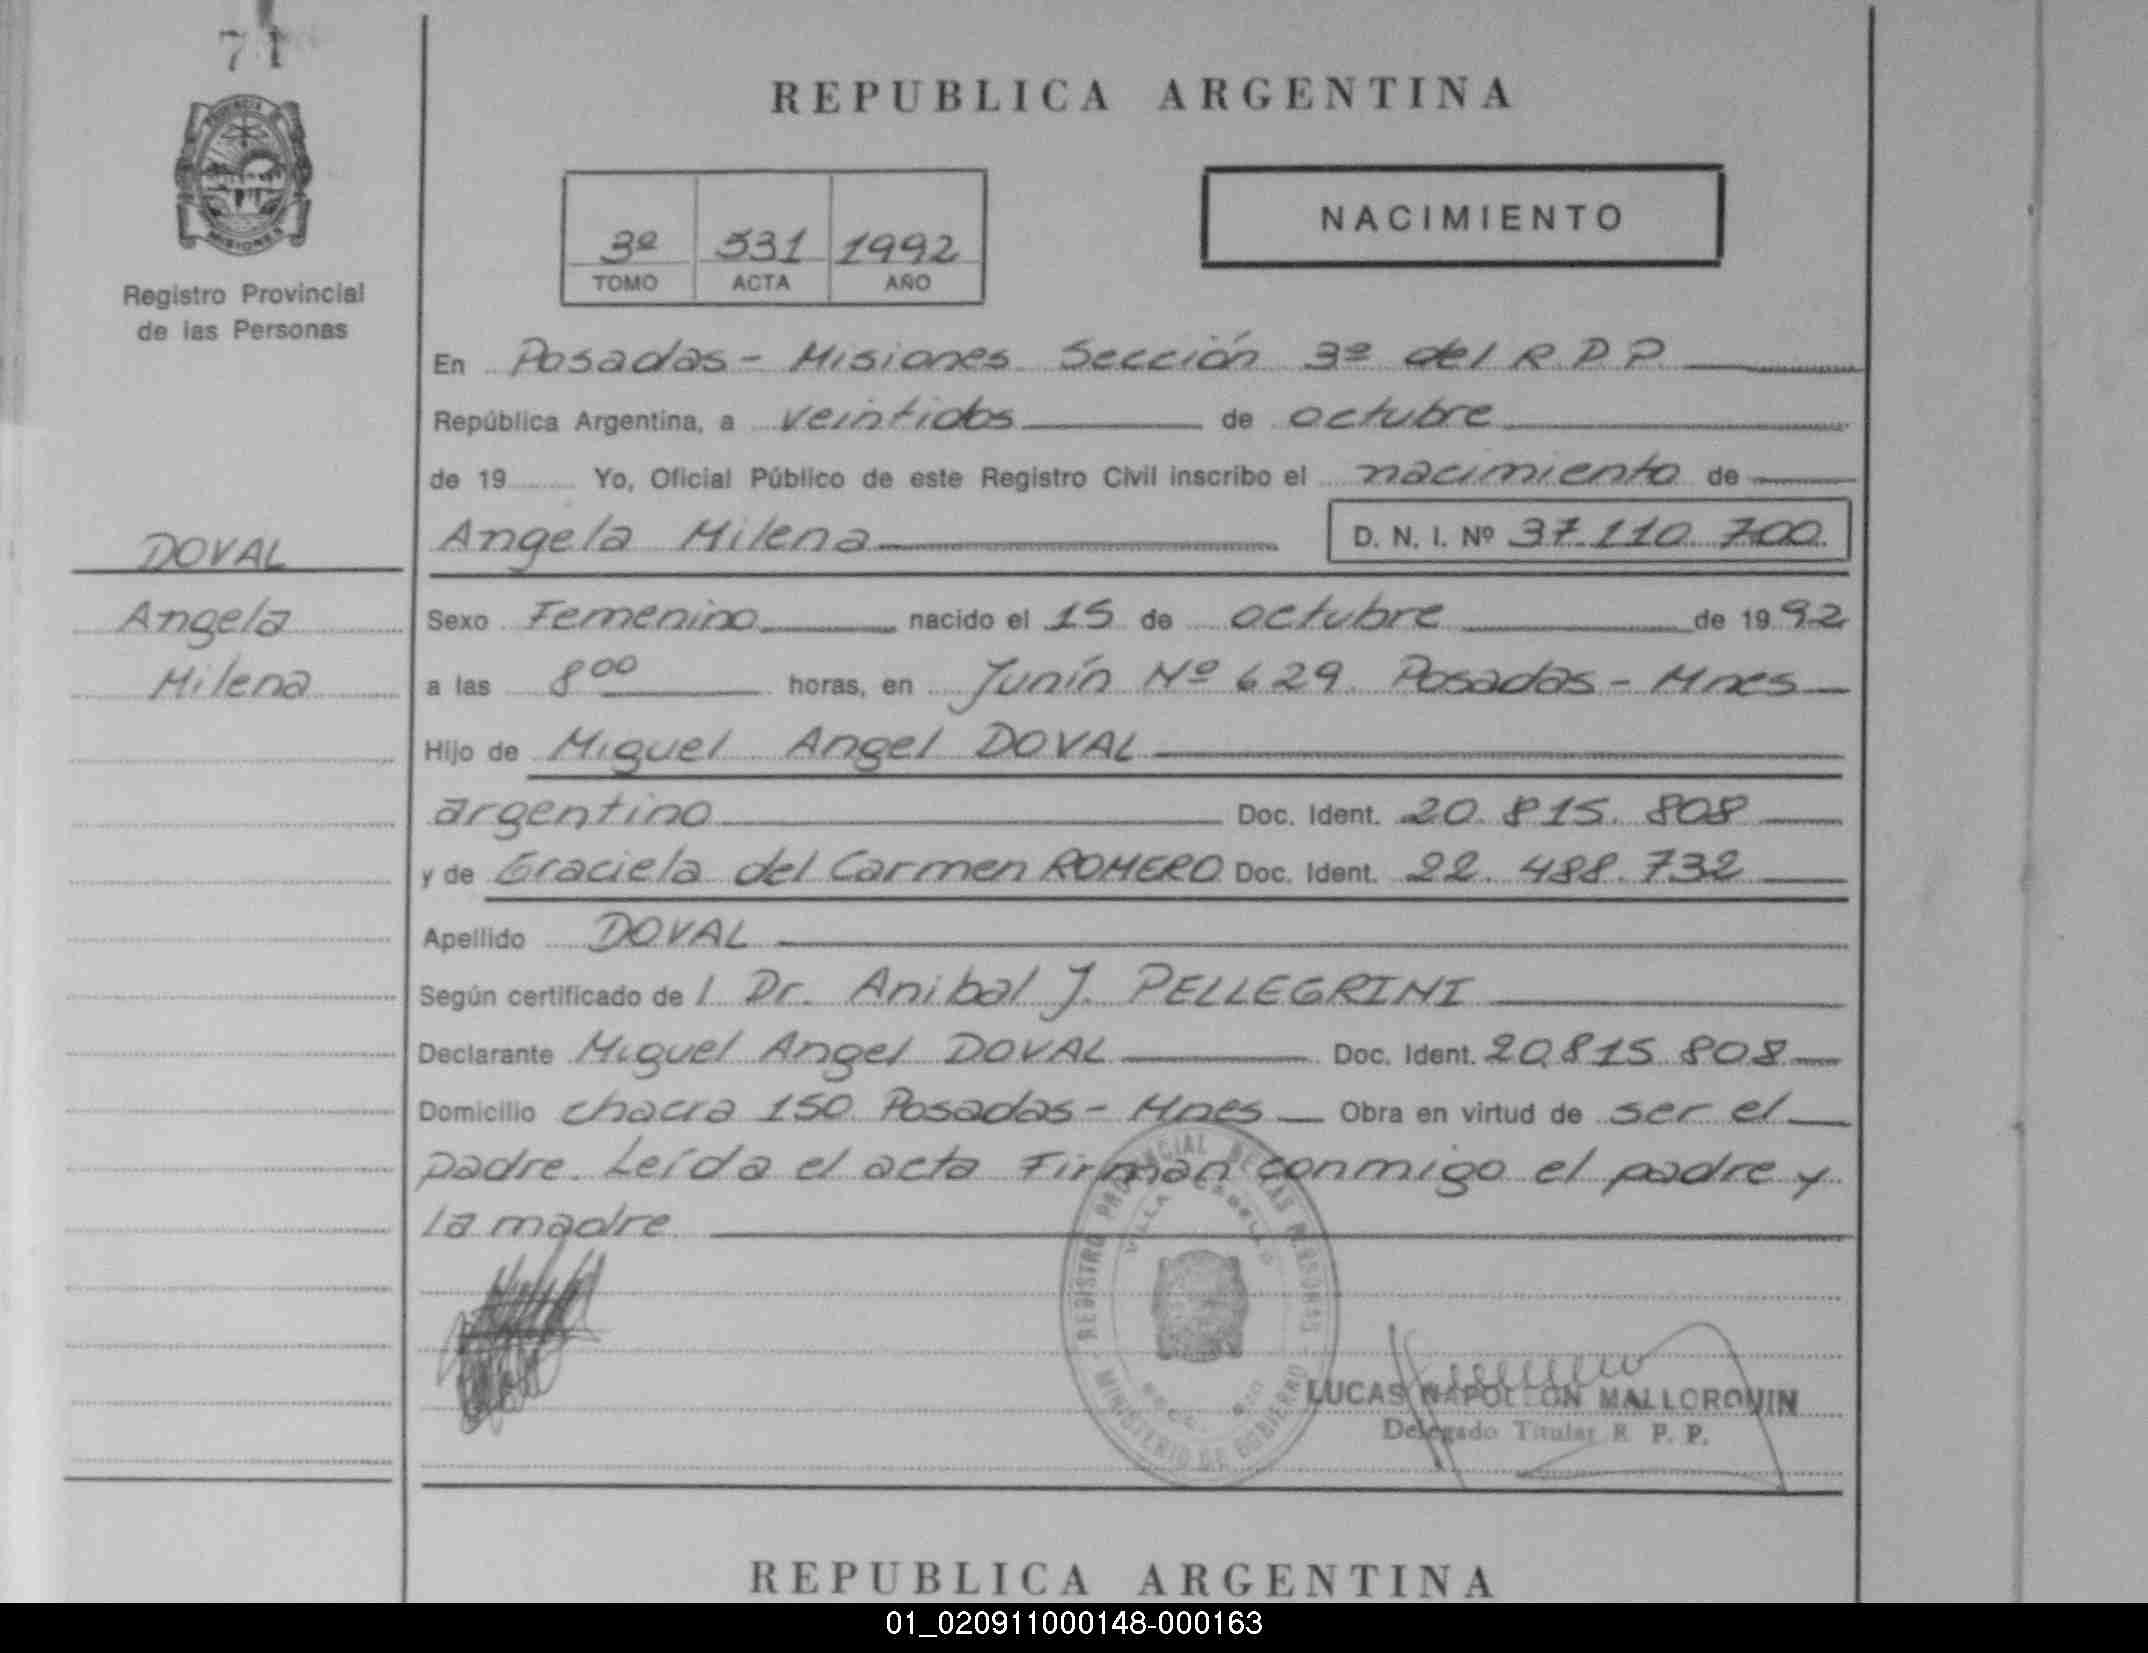 71
REPUBLICA ARGENTINA
PROVINCIA
MISIONES
Registro Provincial
de las Personas
3º 531 1992
TOMO ACTA AÑO
NACIMIENTO
En Posadas - Misiones Sección 3ª del R.P.P.
República Argentina, a veintidos de octubre
de 19 Yo, Oficial Público de este Registro Civil inscribo el nacimiento de
DOVAL
Angela Milena D. N. I. Nº 37.110.700
Angela
Milena
Sexo Femenino nacido el 15 de octubre de 1992
a las 8⁰⁰ horas, en Junín Nº 629 Posadas - Mnes
Hijo de Miguel Angel DOVAL
argentino Doc. Ident. 20.815.808
y de Graciela del Carmen ROMERO Doc. Ident. 22.488.732
Apellido DOVAL
Según certificado de l Dr. Anibal J. PELLEGRINI
Declarante Miguel Angel DOVAL Doc. Ident. 20.815.808
Domicilio chacra 150 Posadas - Mnes Obra en virtud de ser el
padre. Leída el acta Firman conmigo el padre y
la madre
REGISTRO PROVINCIAL DE LAS PERSONAS
VILLA CABELLO
MINISTERIO DE GOBIERNO
LUCAS NAPOLEON MALLORQUIN
Delegado Titular R. P. P.
REPUBLICA ARGENTINA
01_020911000148-000163